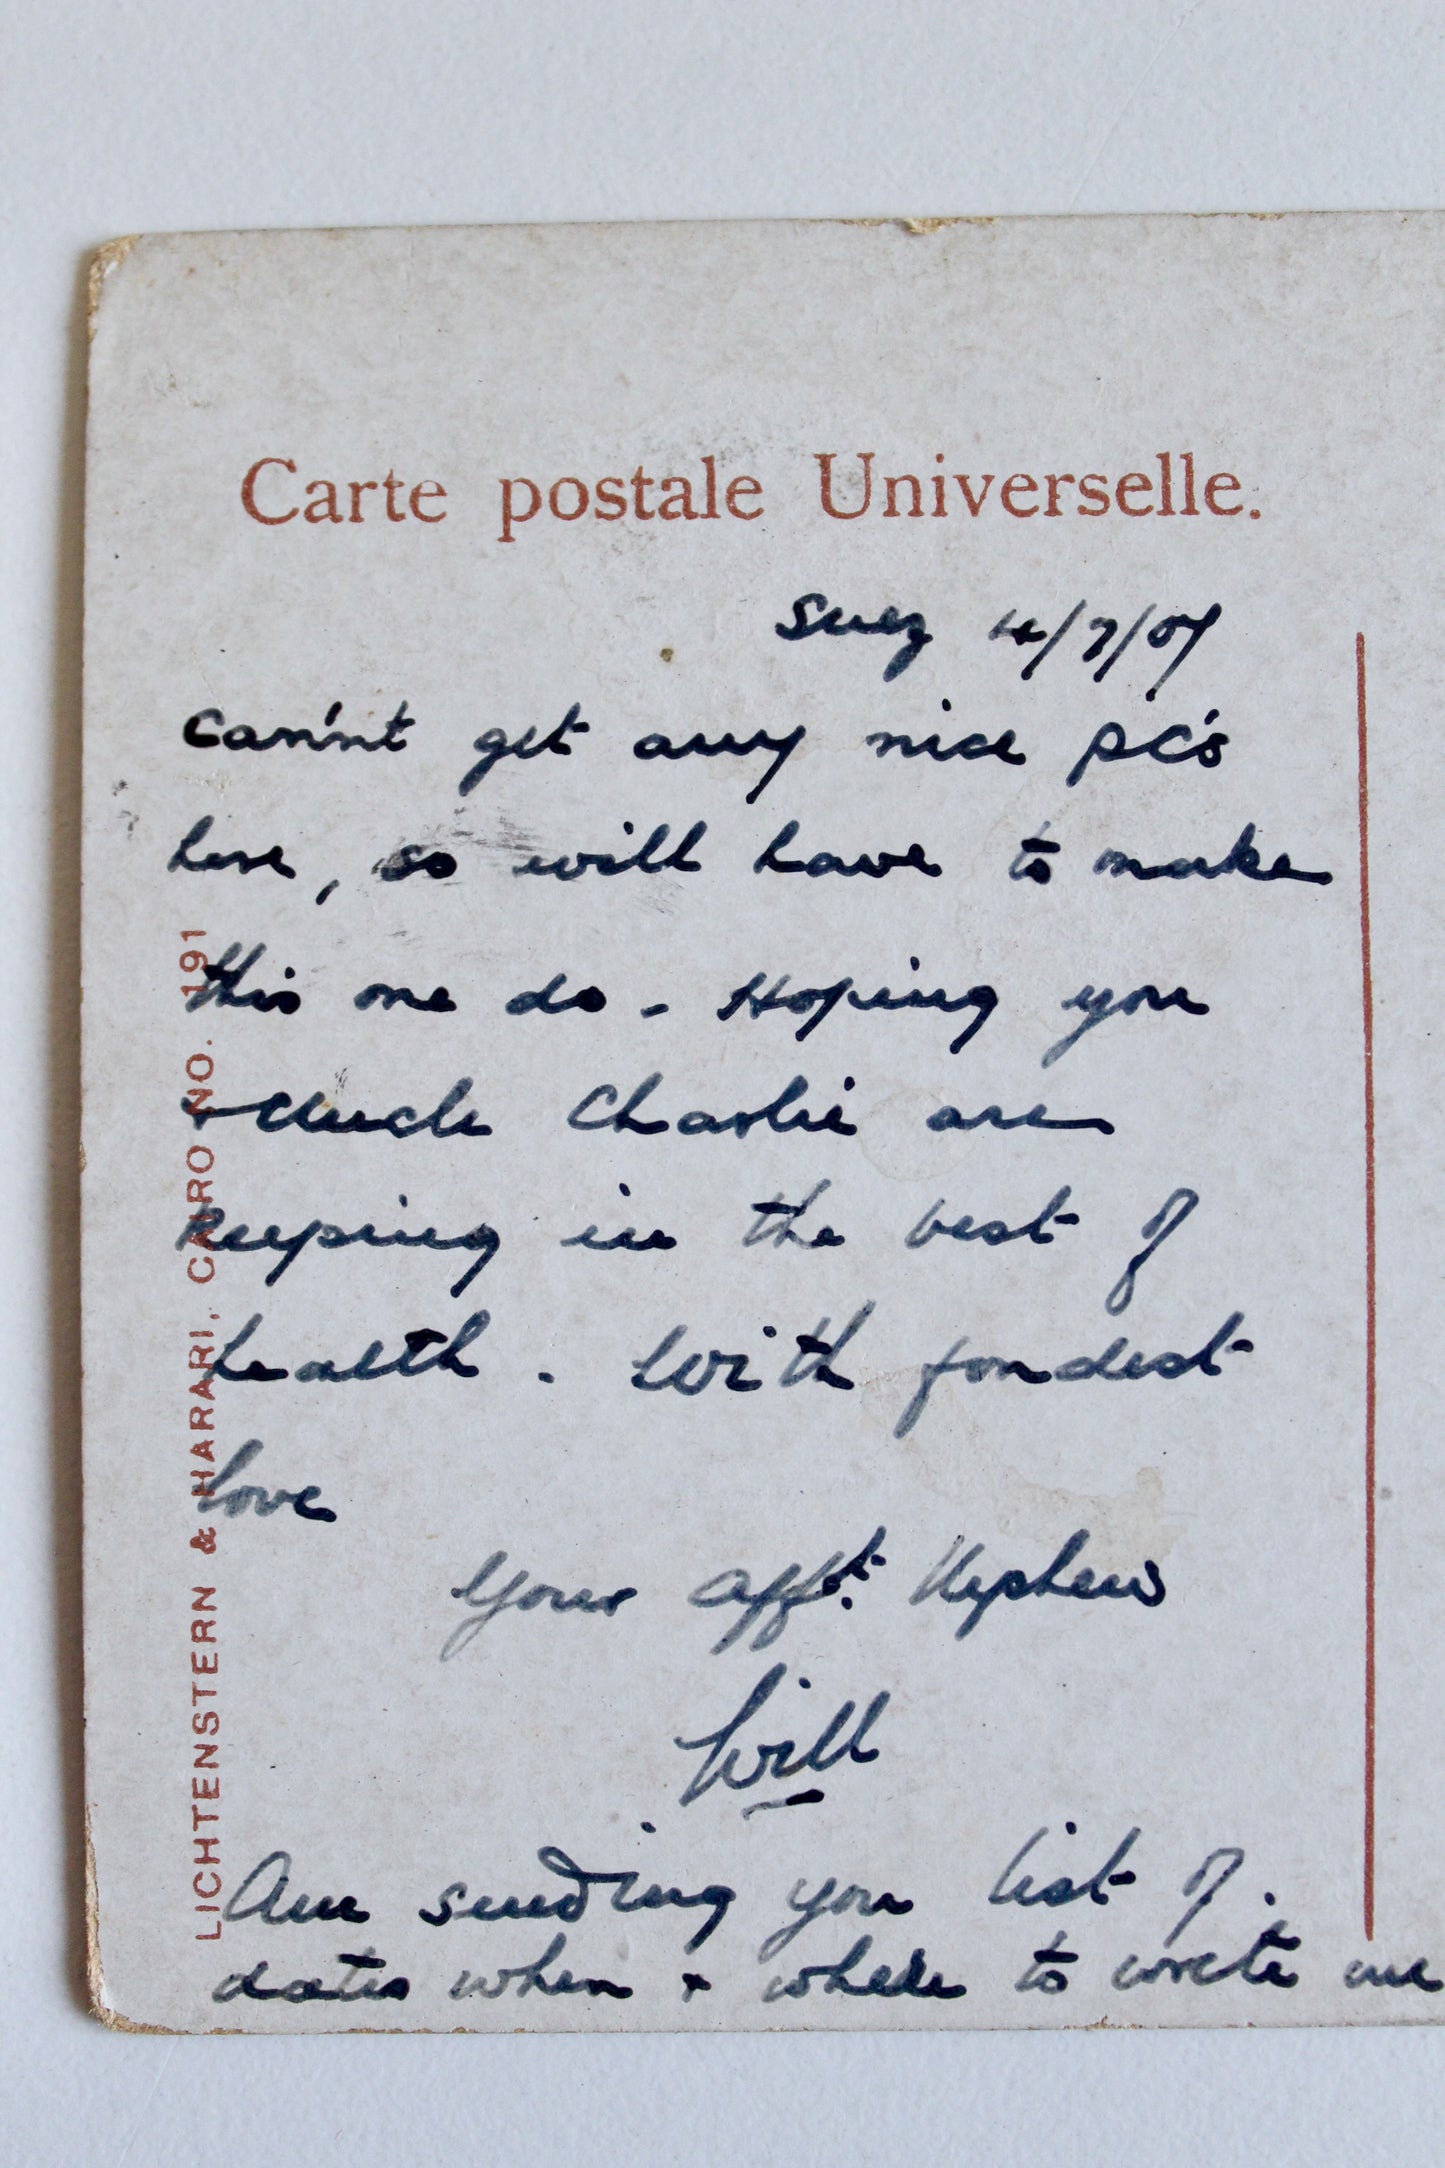 Carte postale Universelle.
Suez 4/7/07
Can'nt get any nice pc's
here, so will have to make
this one do - Hoping you
& Uncle Charlie are
keeping in the best of
health. With fondest
love
Your afft. Nephew
Will
Am sending you list of.
dates when & where to write me
LICHTENSTERN & HARARI, CAIRO NO. 191